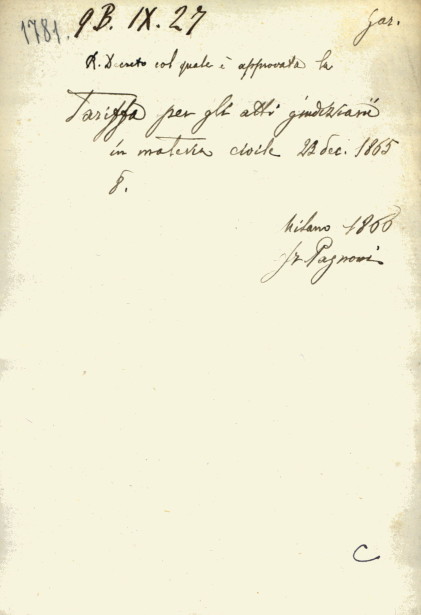 1781. 9 B. IX. 27 Gar.
R. Decreto col quale è approvata la
Tariffa per gli atti giudiziarii
in materia civile 23 dec. 1865
8.
Milano 1866
Fr Pagnoni
C